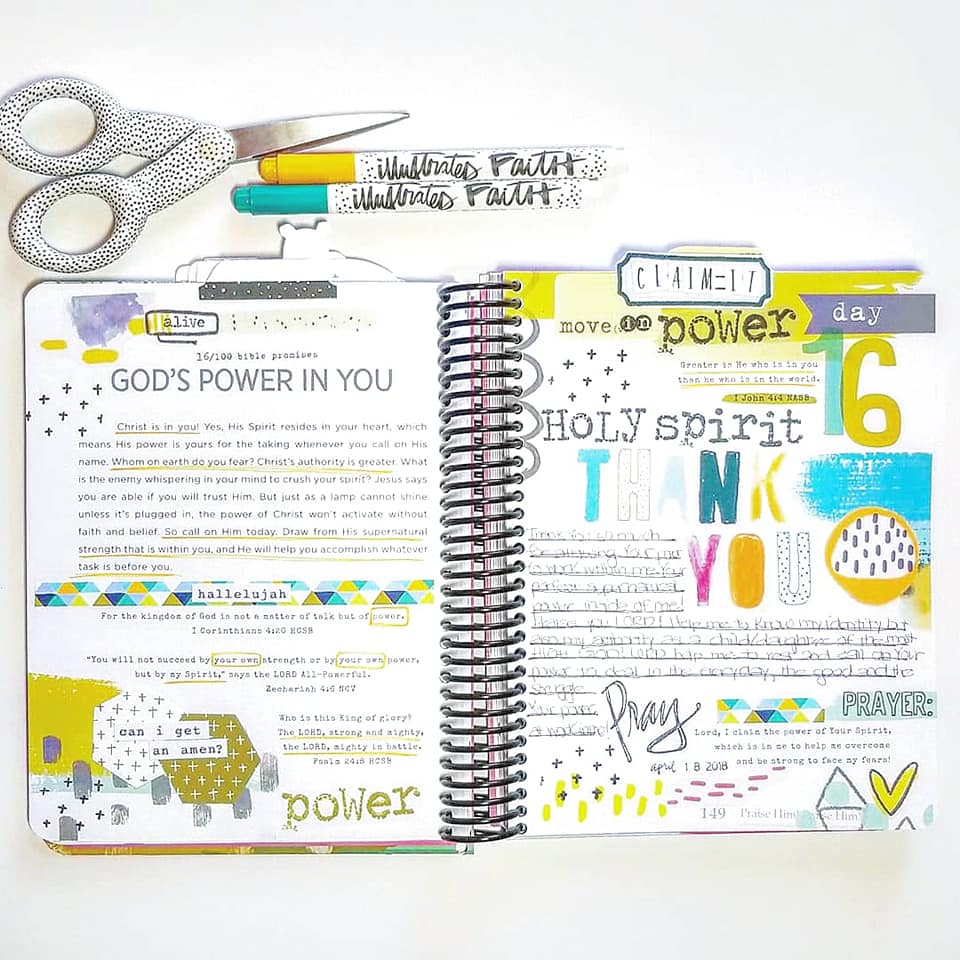 illustrated FAITH
illustrated FAITH
alive
16/100 bible promises
GOD'S POWER IN YOU
Christ is in you! Yes, His Spirit resides in your heart, which
means His power is yours for the taking whenever you call on His
name. Whom on earth do you fear? Christ's authority is greater. What
is the enemy whispering in your mind to crush your spirit? Jesus says
you are able if you will trust Him. But just as a lamp cannot shine
unless it's plugged in, the power of Christ won't activate without
faith and belief. So call on Him today. Draw from His supernatural
strength that is within you, and He will help you accomplish whatever
task is before you.
hallelujah
For the kingdom of God is not a matter of talk but of power.
I Corinthians 4:20 HCSB
"You will not succeed by your own strength or by your own power,
but by my Spirit," says the LORD All-Powerful.
Zechariah 4:6 NCV
Who is this King of glory?
The LORD, strong and mighty,
the LORD, mighty in battle.
Psalm 24:8 HCSB
can i get
an amen?
power
CLAIM-IT
move in power
day
16
Greater is He who is in you
than he who is in the world.
I John 4:4 NASB
HOLY spirit
THANK
YOU
Thank You so much
to work within me Your
inside of me!
LORD! Help me to know my identity but
also my authority as a child/daughter of the most
HIGH GOD! LORD help me to rest and call on Your
power in the everyday, the good and the
struggle
Pray
PRAYER:
Lord, I claim the power of Your Spirit,
which is in me to help me overcome
and be strong to face my fears!
april 18 2018
149 Praise Him! Praise Him!